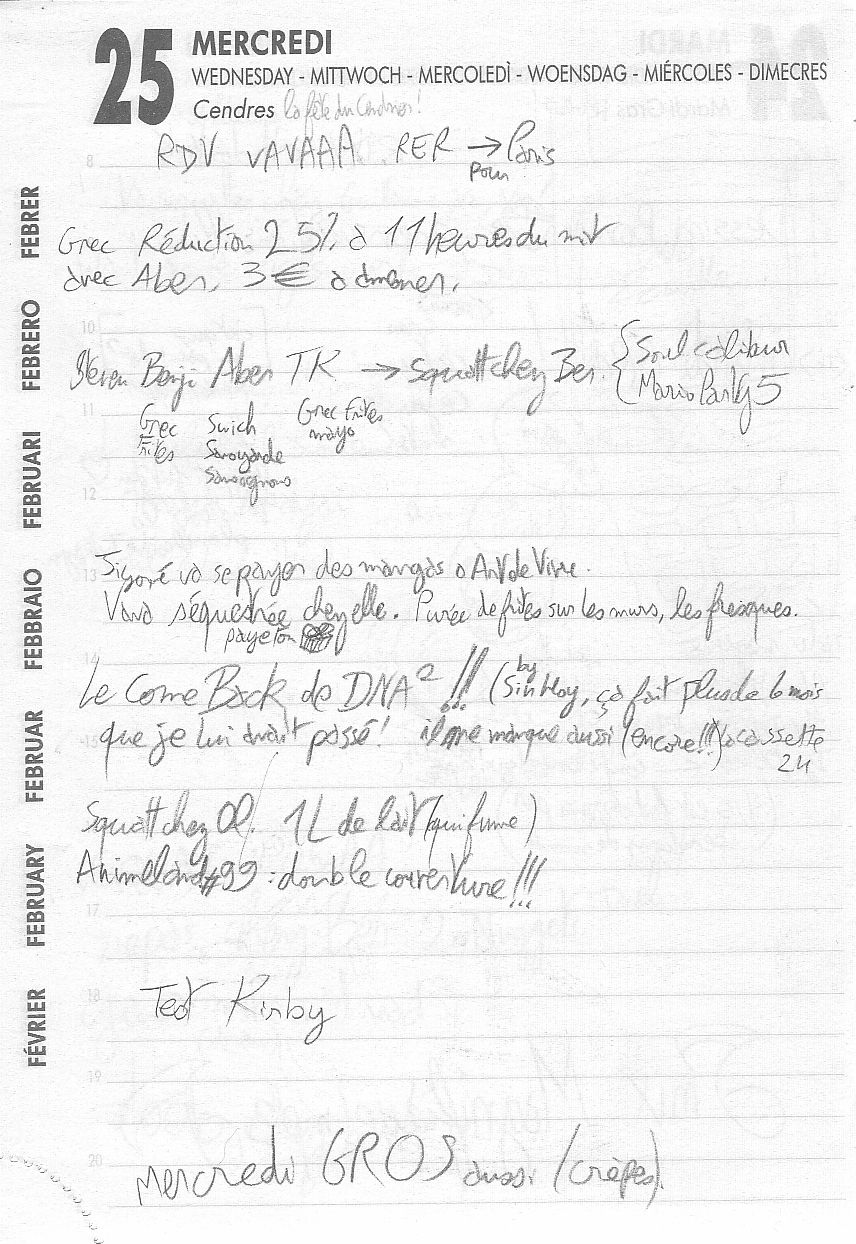 25 MERCREDI
WEDNESDAY - MITTWOCH - MERCOLEDÌ - WOENSDAG - MIÉRCOLES - DIMECRES
Cendres la fête du Cendres!
8
RDV VAVAAA. RER → Paris
pour
Grec Réduction 25% à 11 heures du mat
avec Aben, 3€ à
10
Steven Benji Aben TK → Squatt chez Ben. { Soul calibur
{ Mario Party 5
11
Grec Swich Grec Frites
Frites Savoyarde mayo
12
13
va se payer des mangas à Art de Vivre.
Vava séquestrée chez elle. Purée de frites sur les murs, les fresques.
paye ton
14
Le Come Back de DNA² !!! (by Sinkloy, ça fait plus de 6 mois
15
que je lui avait passé! il me manque aussi (encore!!!) la cassette
24
Squatt chez Ol. 1L de lait (qui fume)
Animeland #99 : double couverture!!!
17
18
Test Kirby
19
20
Mercredi GROS aussi (crêpes).
FÉVRIER FEBRUARY FEBRUAR FEBBRAIO FEBRUARI FEBRERO FEBRER